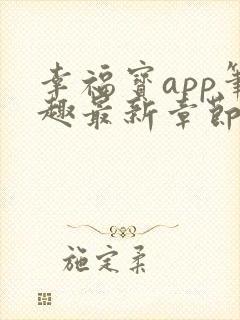 幸福宝app笔
趣最新章节
施定柔